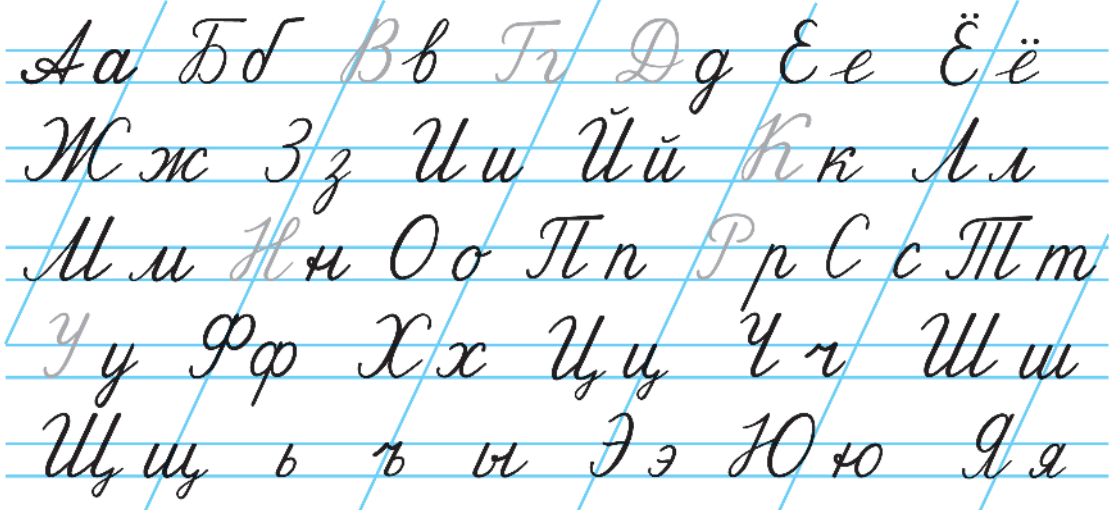 Аа Бб Вв Гг Дд Ее Ёё
Жж Зз Ии Йй Кк Лл
Мм Нн Оо Пп Рр Сс Тт
Уу Фф Хх Цц Чч Шш
Щщ ь ъ ы Ээ Юю Яя